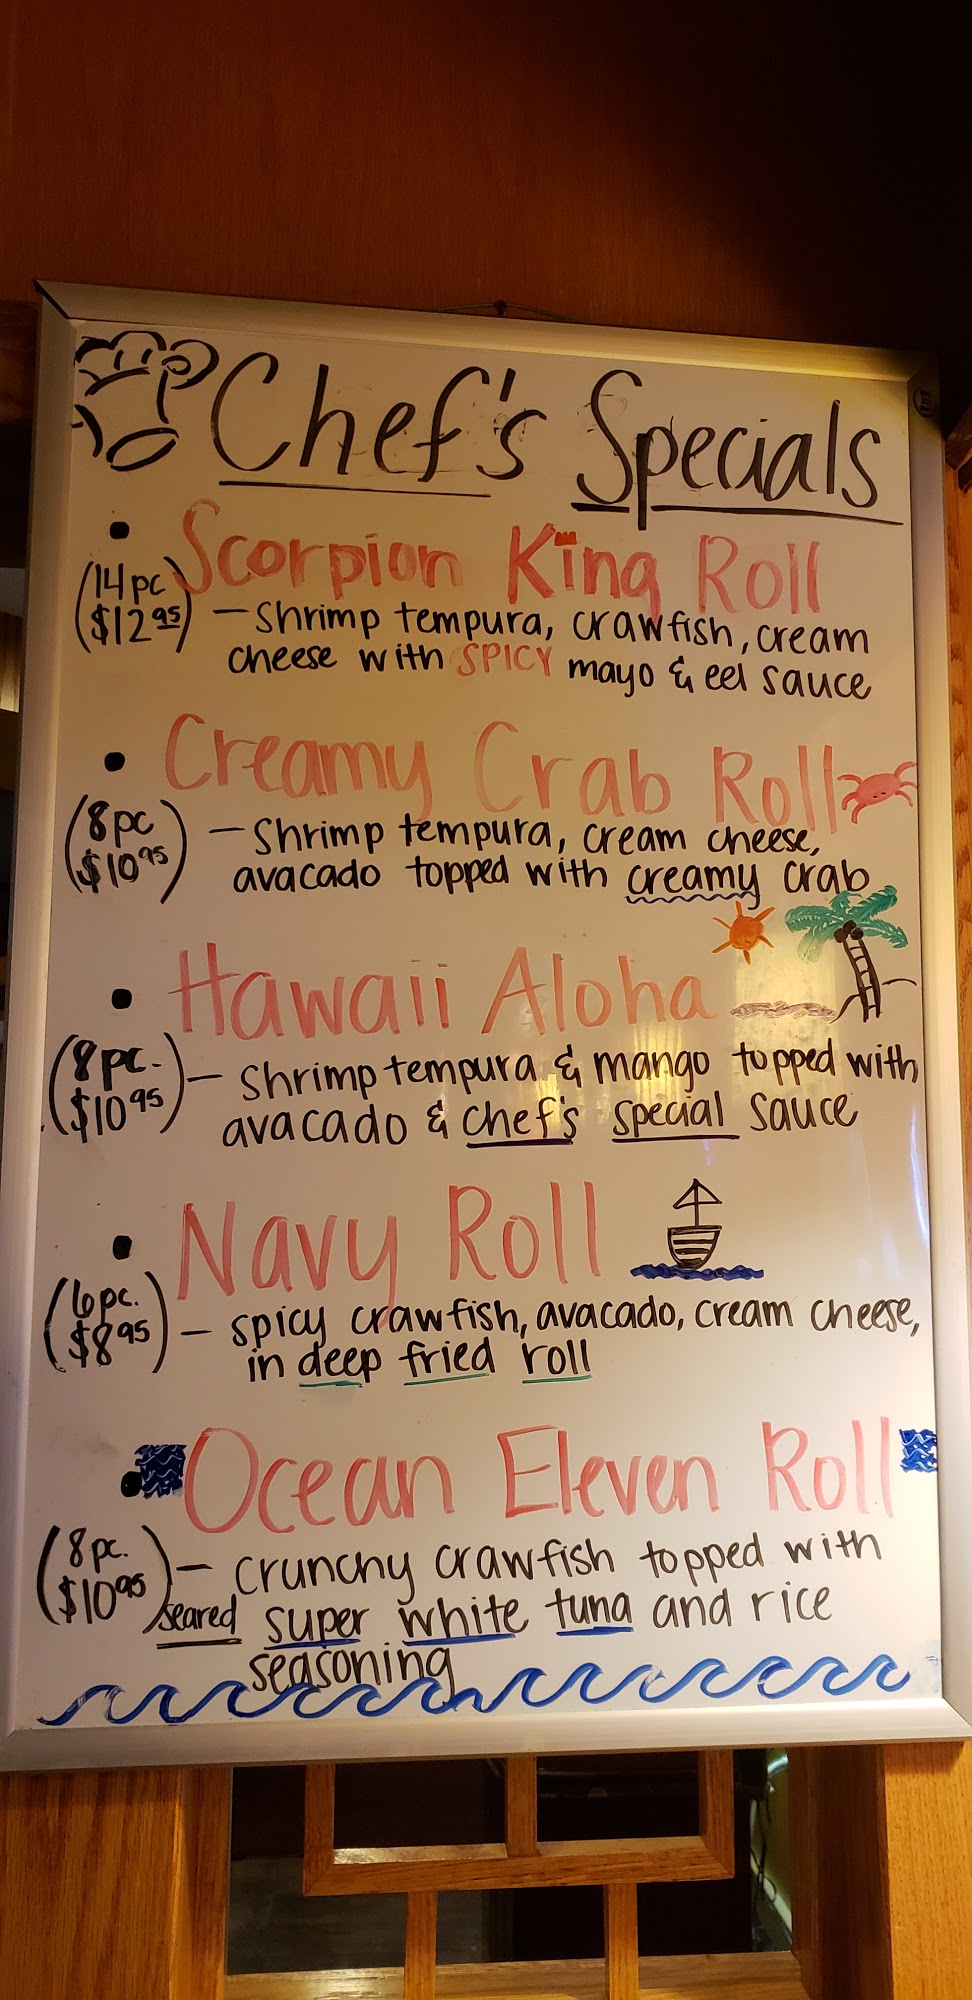 Chef's Specials
• Scorpion King Roll
(14 pc $12.95) — Shrimp tempura, crawfish, cream
cheese with SPICY mayo & eel sauce
• Creamy Crab Roll
(8 pc $10.95) — Shrimp tempura, cream cheese,
avacado topped with creamy crab
• Hawaii Aloha
(8 pc. $10.95) — Shrimp tempura & mango topped with
avacado & chef's special sauce
• Navy Roll
(6 pc. $8.95) — spicy crawfish, avacado, cream cheese,
in deep fried roll
• Ocean Eleven Roll
(8 pc. $10.95) — crunchy crawfish topped with
seared super white tuna and rice
seasoning